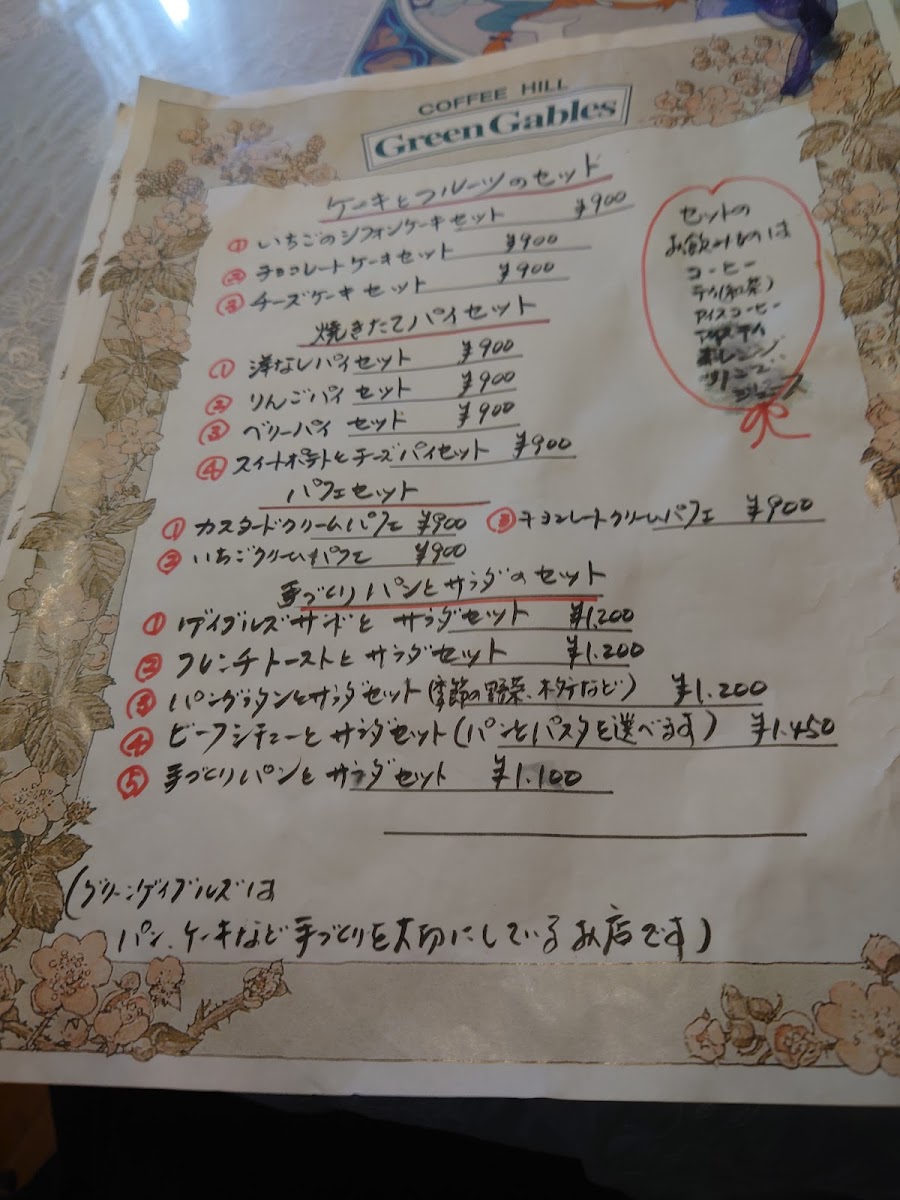 COFFEE HILL
Green Gables
ケーキとフルーツのセット
① いちごのシフォンケーキセット ¥900
② チョコレートケーキセット ¥900
③ チーズケーキセット ¥900
焼きたてパイセット
① 洋なしパイセット ¥900
② りんごパイセット ¥900
③ ベリーパイセット ¥900
④ スイートポテトとチーズパイセット ¥900
パフェセット
① カスタードクリームパフェ ¥900
② いちごクリームパフェ ¥900
③ チョコレートクリームパフェ ¥900
手づくりパンとサラダのセット
① ゲイブルズサンドとサラダセット ¥1.200
② フレンチトーストとサラダセット ¥1.200
③ パングラタンとサラダセット(季節の野菜、ホタテなど) ¥1.200
④ ビーフシチューとサラダセット(パンとパスタを選べます) ¥1.450
⑤ 手づくりパンとサラダセット ¥1.100
(グリーンゲイブルズは
パン、ケーキなど手づくりを大切にしているお店です)
セットの
お飲みものは
コーヒー
テイ(紅茶)
アイスコーヒー
アイスティ
オレンジ
ジュース